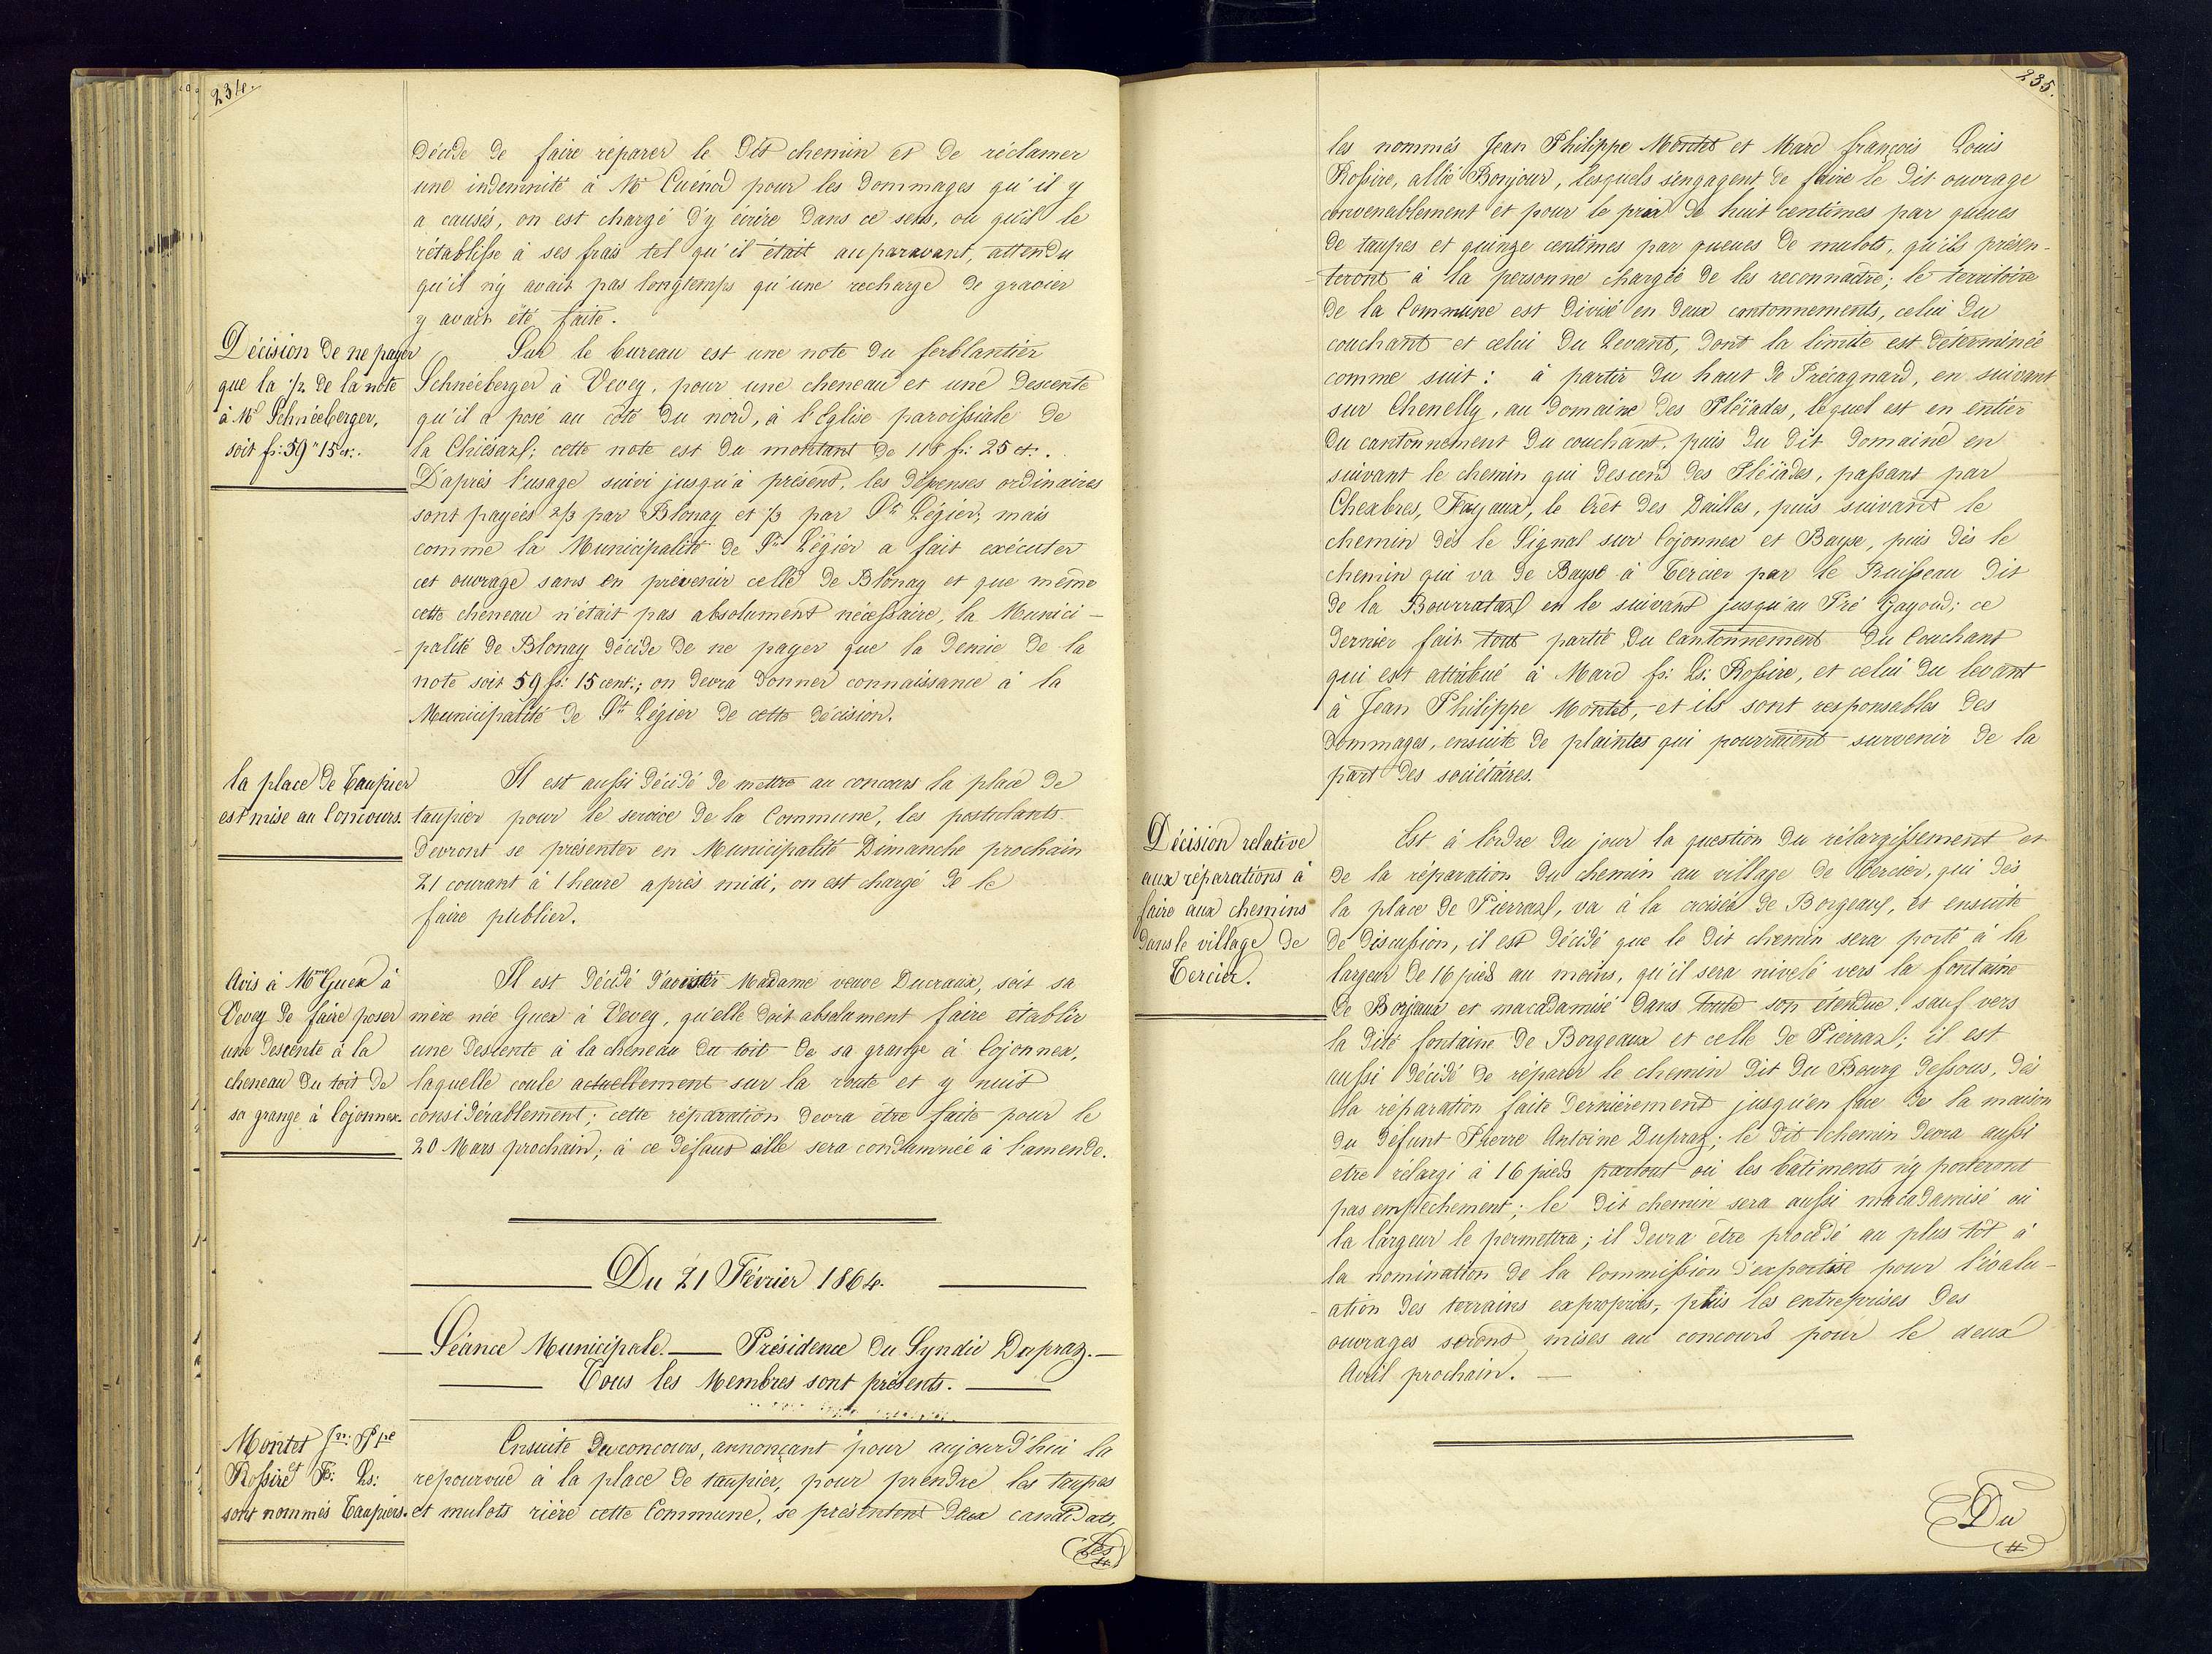 234.
décide de faire réparer le dit chemin et de réclamer
une indemnité à Mr Cuénod pour les dommages qu'il y
a causés, on est chargé d'y écrire dans ce sens, ou qu'il le
rétablisse à ses frais tel qu'il était auparavant, attendu
qu'il n'y avait pas longtemps qu'une recharge de gravier
y avait été faite.
Décision de ne payer
que la 1/2 de la note
à Mr Schnéeberger,
soit fr: 59 " 15 ct:.
Sur le bureau est une note du ferblantier
Schnéeberger à Vevey, pour une cheneau et une descente
qu'il a posé au côté du nord, à l'Eglise paroissiale de
la Chiésaz; cette note est du montant de 118 fr: 25 ct:.
D'après l'usage suivi jusqu'à présent, les dépenses ordinaires
sont payées 2/3 par Blonay et 1/3 par St Légier, mais
comme la Municipalité de St Légier a fait exécuter
cet ouvrage sans en prévenir celle de Blonay et que même
cette cheneau n'était pas absolument nécessaire, la Munici-
-palité de Blonay décide de ne payer que la demie de la
note soit 59 fr: 15 cent:; on devra donner connaissance à la
Municipalité de St Légier de cette décision.
la place de Taupier
est mise au Concours.
Il est aussi décidé de mettre au concours la place de
taupier pour le service de la Commune, les postulants
devront se présenter en Municipalité Dimanche prochain
21 courant à 1 heure après midi, on est chargé de le
faire publier.
Avis à Mme Guex à
Vevey de faire poser
une descente à la
cheneau du toit de
sa grange à Cojonnex.
Il est décidé d'avister Madame veuve Ducraux, soit sa
mère née Guex à Vevey, qu'elle doit absolument faire établir
une descente à la cheneau du toit de sa grange à Cojonnex,
laquelle coule actuellement sur la route et y nuit
considérablement; cette réparation devra être faite pour le
20 Mars prochain; à ce défaut elle sera condamnée à l'amende.
Du 21 Février 1864.
Séance Municipale. — Présidence du Syndic Dupraz. —
Tous les Membres sont présents.
Montet Jn: Ppe
et Rossire F: Ls:
sont nommés Taupiers.
Ensuite du concours, annonçant pour aujourd'hui la
repourvue à la place de taupier, pour prendre les taupes
et mulots rière cette Commune, se présentent deux candidats,
les
235.
les nommés Jean Philippe Montet et Marc françois Louis
Rossire, allié Bonjour, lesquels s'engagent de faire le dit ouvrage
convenablement et pour le prix de huit centimes par queues
de taupes et quinze centimes par queues de mulots, qu'ils présen-
-teront à la personne chargée de les reconnaître; le territoire
de la Commune est divisé en deux cantonnements, celui du
couchant et celui du levant, dont la limite est déterminée
comme suit: à partir du haut de Précagnard, en suivant
sur Chenelly, au domaine des Pléïades, lequel est en entier
du cantonnement du couchant, puis du dit domaine en
suivant le chemin qui descend des Pléïades, passant par
Chexbres, Fayaux, le Crêt des Dailles, puis suivant le
chemin dès le Signal sur Cojonnex et Bayse, puis dès le
chemin qui va de Bayse à Tercier par le Ruisseau dit
de la Bourrataz en le suivant jusqu'au Pré Gayoud; ce
dernier fait tout partie du Cantonnement du Couchant
qui est attribué à Marc fr: Ls: Rossire, et celui du levant
à Jean Philippe Montet, et ils sont responsables des
dommages, ensuite de plaintes qui pourraient survenir de la
part des sociétaires.
Décision relative
aux réparations à
faire aux chemins
dans le village de
Tercier.
Est à l'ordre du jour la question du rélargissement et
de la réparation du chemin au village de Tercier, qui dès
la place de Pierraz, va à la croisée de Borgeaux, et ensuite
de discussion, il est décidé que le dit chemin sera porté à la
largeur de 16 pieds au moins, qu'il sera nivelé vers la fontaine
de Borjeaux et macadamisé dans toute son étendue, sauf vers
la dite fontaine de Borgeaux et celle de Pierraz; il est
aussi décidé de réparer le chemin dit du Bourg dessous, dès
la réparation faite dernièrement jusqu'en face de la maison
du défunt Pierre Antoine Dupraz; le dit chemin devra aussi
être rélargi à 16 pieds partout où les bâtiments n'y porteront
pas empêchement; le dit chemin sera aussi macadamisé où
la largeur le permettra; il devra être procédé au plus tôt à
la nomination de la Commission d'expertise pour l'évalu-
-ation des terrains expropriés, puis les entreprises des
ouvrages seront mises au concours pour le deux
Avril prochain. —
Du